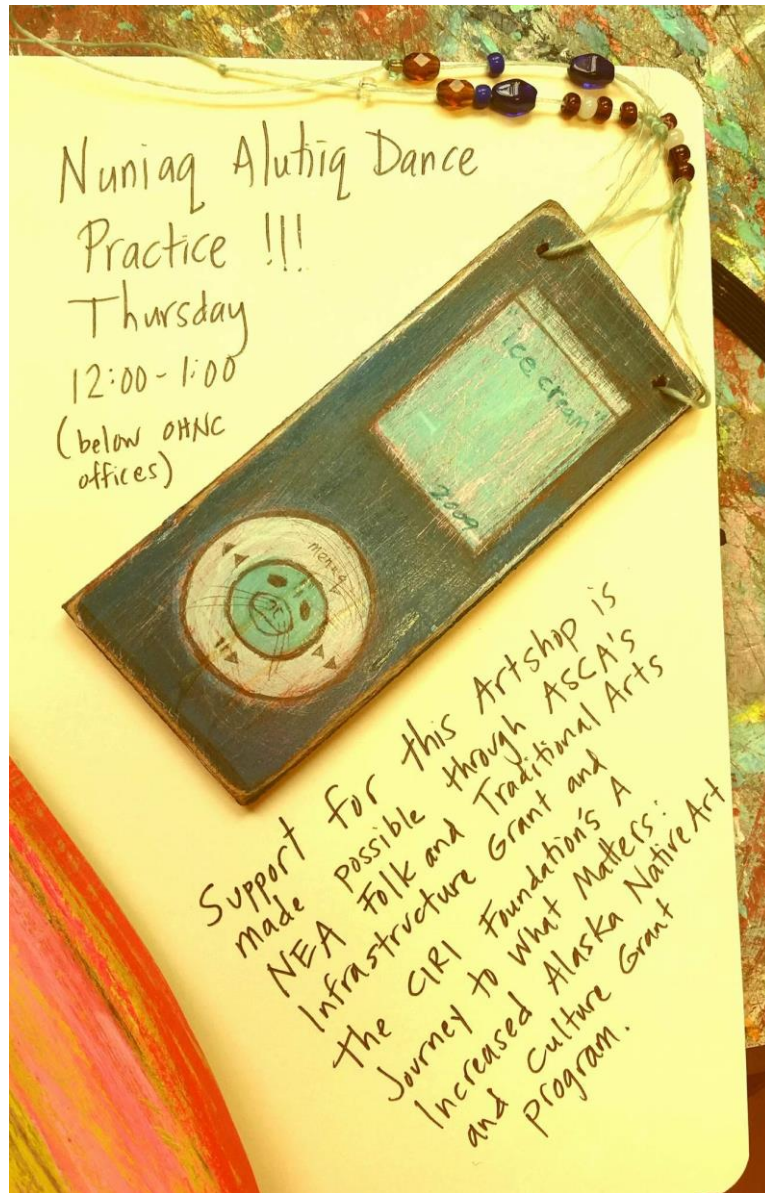 Nuniaq Alutiiq Dance
Practice !!!
Thursday
12:00-1:00
(below OHNC
offices)
"ice cream"
2009
Support for this Artshop is
made possible through ASCA's
NEA Folk and Traditional Arts
Infrastructure Grant and
the CIRI Foundation's A
Journey to What Matters:
Increased Alaska Native Art
and Culture Grant
program.